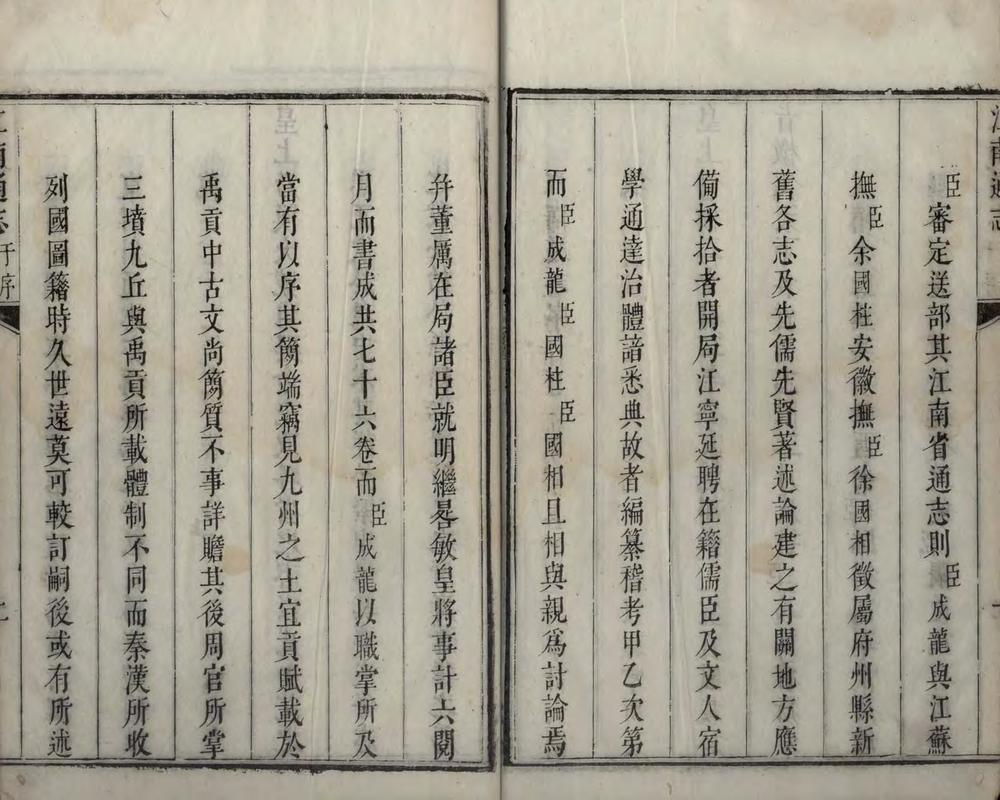 江南通志
臣審定送部其江南省通志則臣成龍與江蘇
撫臣余國柱安徽撫臣徐國相徵屬府州縣新
舊各志及先儒先賢著述論建之有關地方應
備採拾者開局江寧延聘在籍儒臣及文人宿
學通達治體諳悉典故者編纂稽考甲乙次第
而臣成龍臣國柱臣國相且相與親為討論焉
幷董厲在局諸臣就明繼晷敏皇將事計六閱
月而書成共七十六卷而臣成龍以職掌所及
當有以序其簡端竊見九州之土宜貢賦載於
禹貢中古文尚簡質不事詳贍其後周官所掌
三墳九丘與禹貢所載體制不同而秦漢所收
列國圖籍時久世遠莫可較訂嗣後或有所述
江南通志 于序